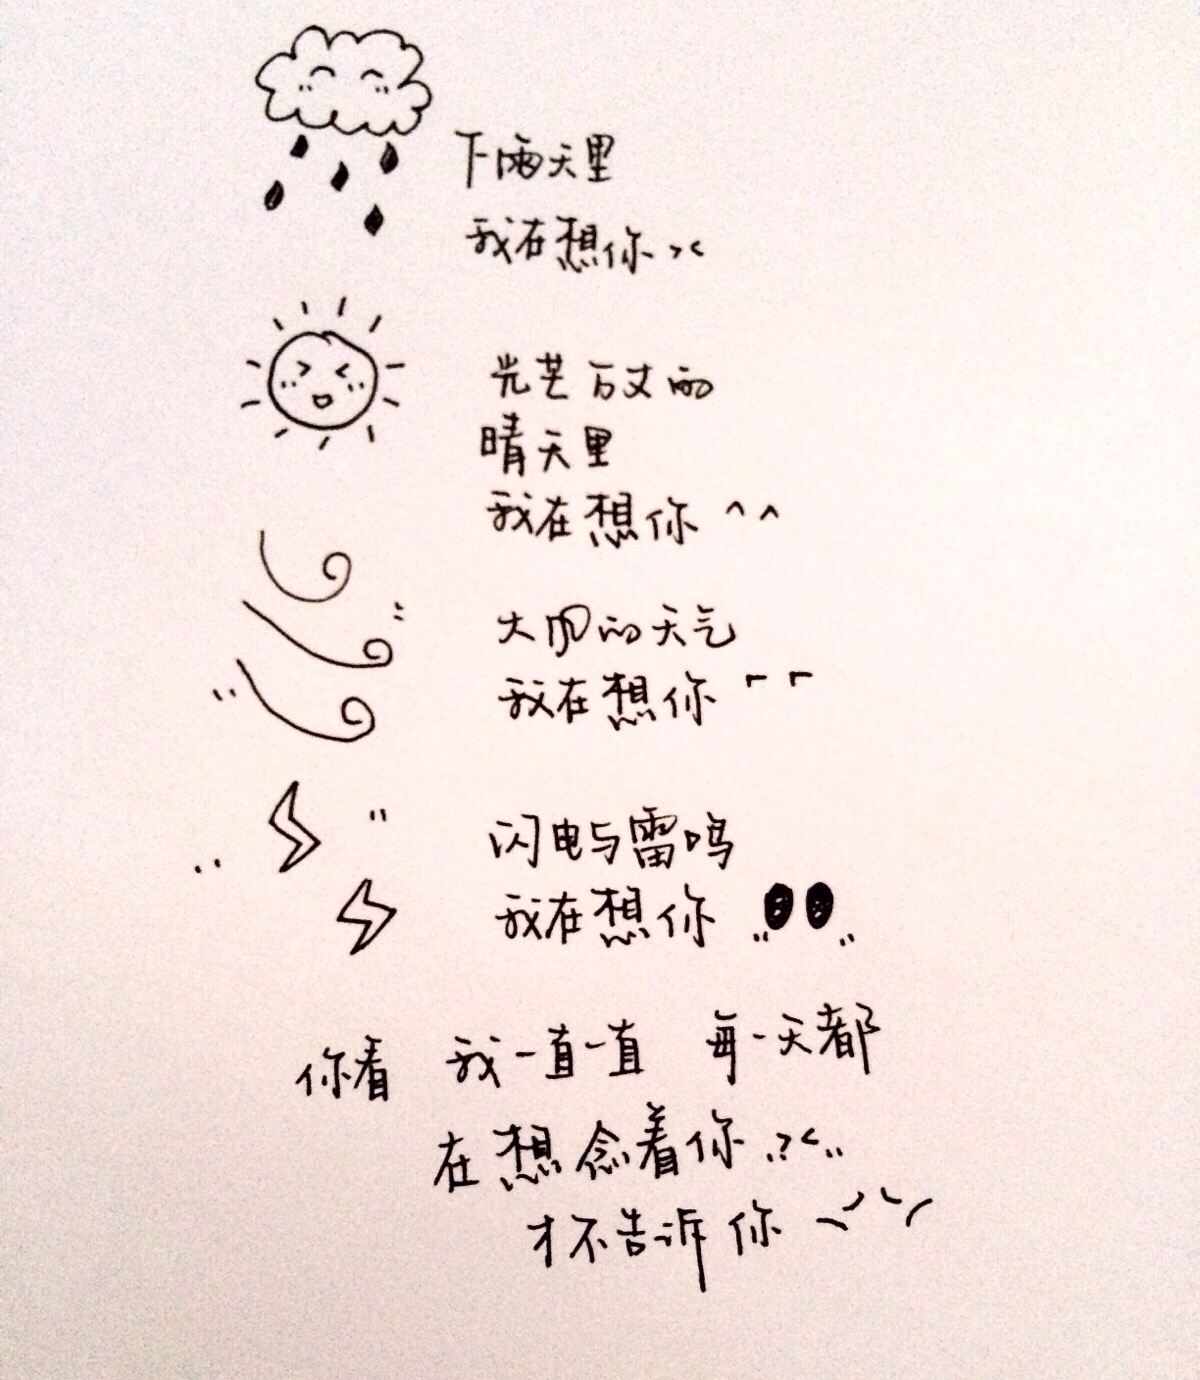 下雨天里
我在想你 ><
光芒万丈的
晴天里
我在想你 ^ ^
大风的天气
我在想你
闪电与雷鸣
我在想你
你看 我一直一直 每一天都
在想念着你 ..><..
才不告诉你